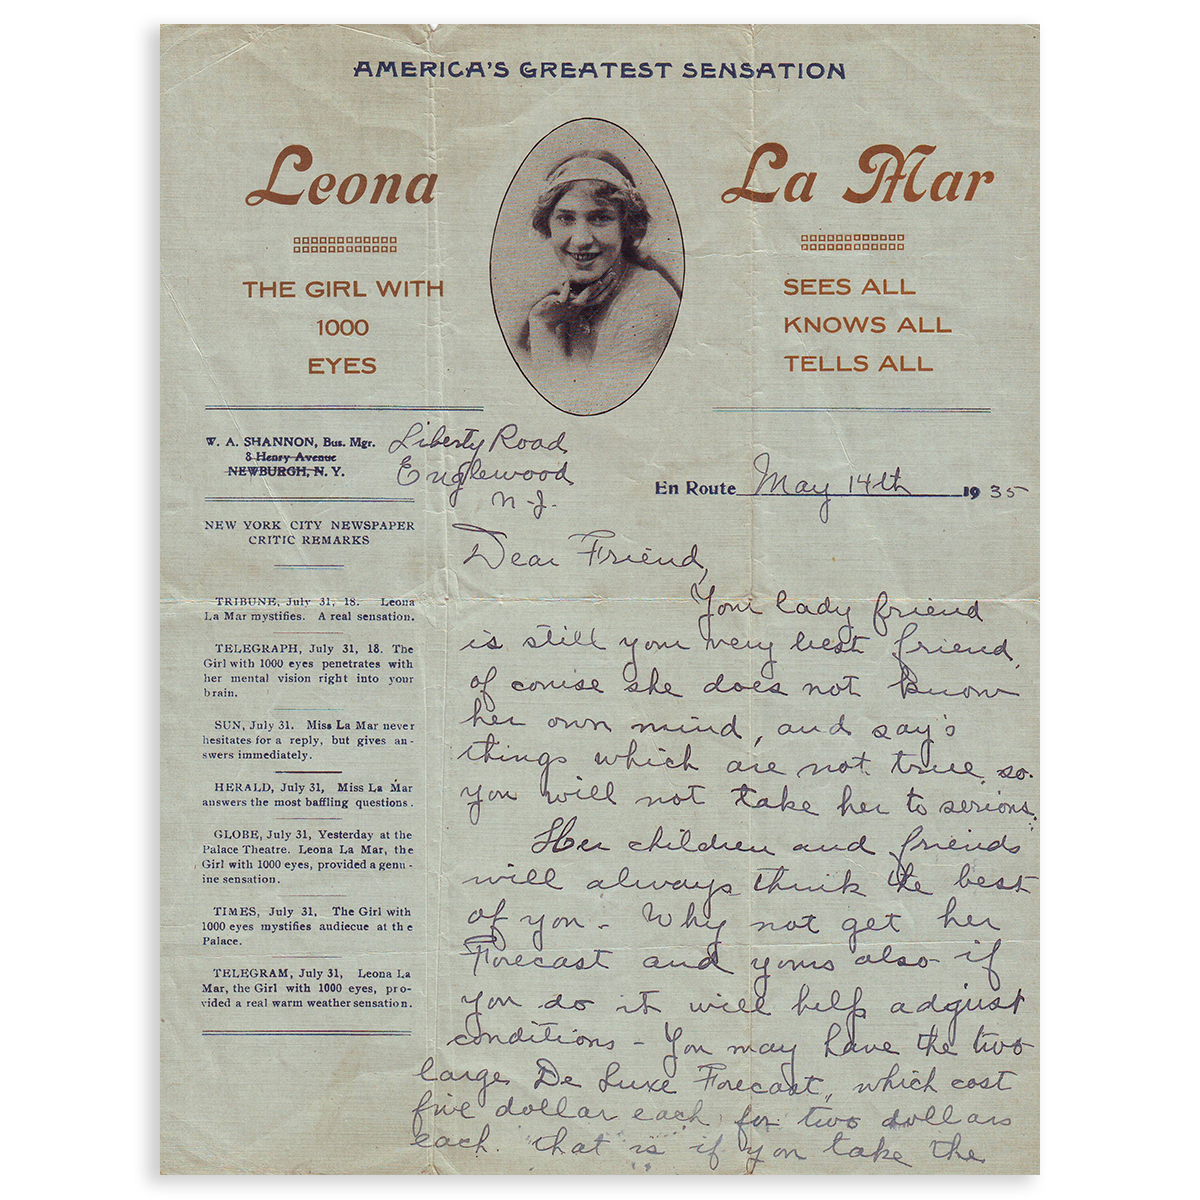 AMERICA'S GREATEST SENSATION
Leona La Mar
THE GIRL WITH
1000
EYES
SEES ALL
KNOWS ALL
TELLS ALL
W. A. SHANNON, Bus. Mgr.
8 Henry Avenue
NEWBURGH, N. Y.
Liberty Road
Englewood
N-J.
En Route May 14th 1935
NEW YORK CITY NEWSPAPER
CRITIC REMARKS
TRIBUNE, July 31, 18. Leona
La Mar mystifies. A real sensation.
TELEGRAPH, July 31, 18. The
Girl with 1000 eyes penetrates with
her mental vision right into your
brain.
SUN, July 31. Miss La Mar never
hesitates for a reply, but gives an-
swers immediately.
HERALD, July 31, Miss La Mar
answers the most baffling questions.
GLOBE, July 31, Yesterday at the
Palace Theatre. Leona La Mar, the
Girl with 1000 eyes, provided a genu-
ine sensation.
TIMES, July 31, The Girl with
1000 eyes mystifies audiecue at the
Palace.
TELEGRAM, July 31, Leona La
Mar, the Girl with 1000 eyes, pro-
vided a real warm weather sensation.
Dear Friend,
Your lady friend
is still your very best friend,
of course she does not know
her own mind, and say's
things which are not true, so
you will not take her to serious.
Her children and friends
will always think the best
of you - Why not get her
Forecast and yours also - if
you do it will help adjust
conditions - You may have the two
large De Luxe Forecast, which cost
five dollar each for two dollars
each. that is if you take the